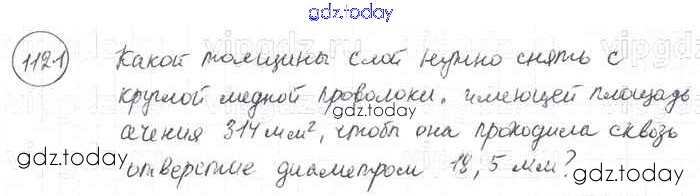 gdz.today
1121 Какой толщины слой нужно снять с
круглой медной проволоки, имеющей площадь
сечения 314 мм², чтобы она проходила сквозь
gdz.today
отверстие диаметром 18,5 мм?
gdz.today